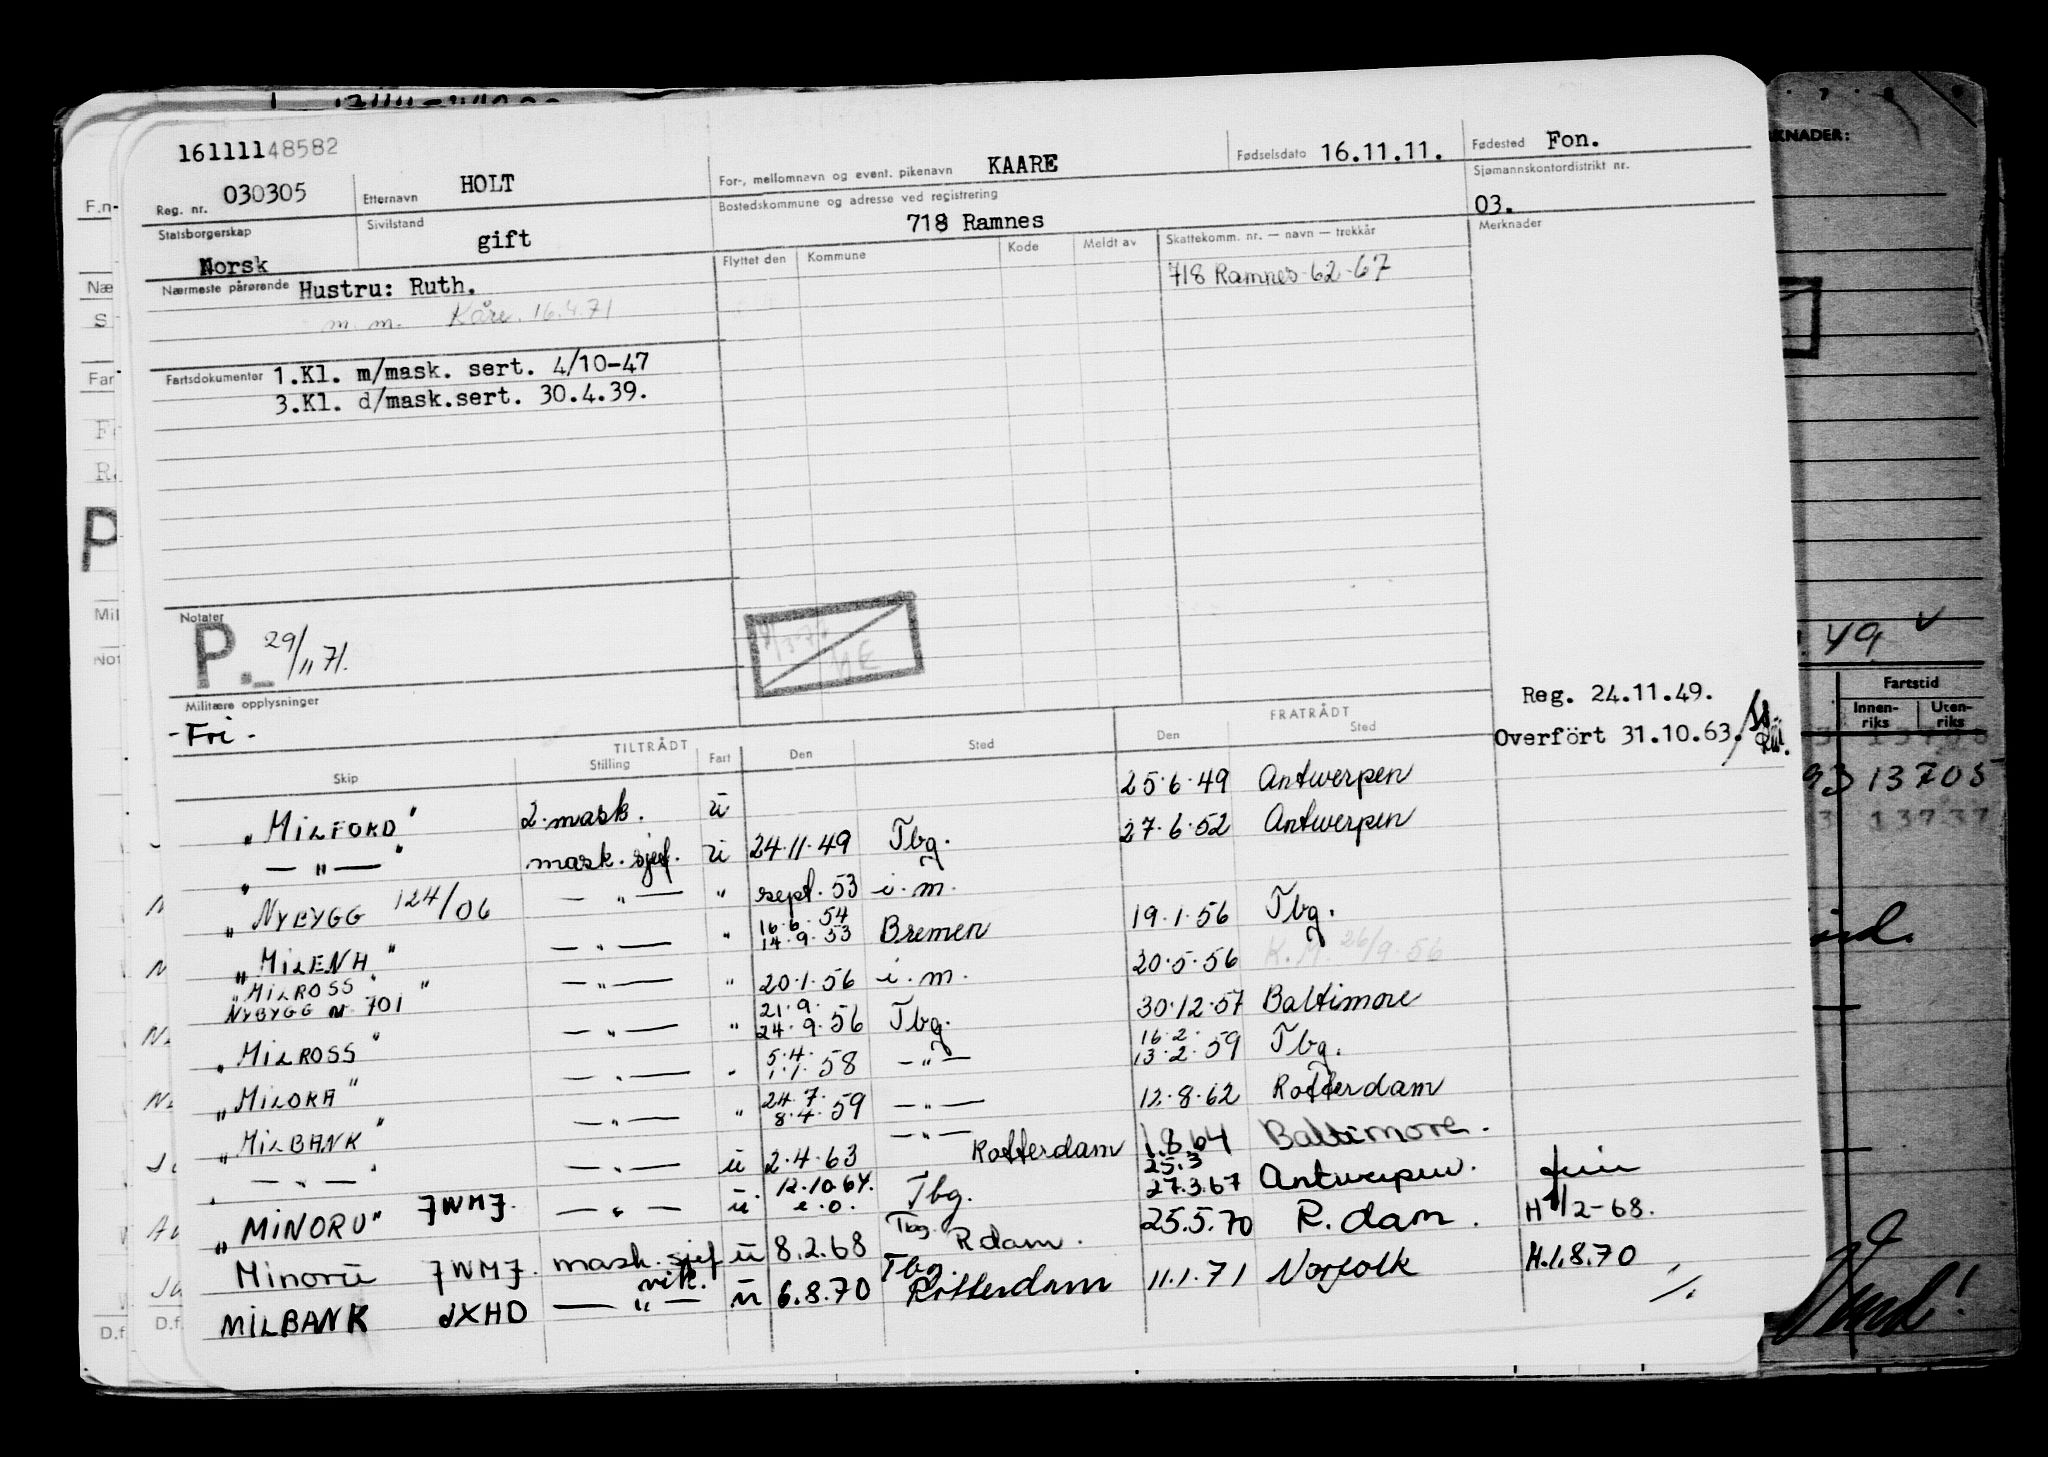 16111148582
Reg. nr. 030305 Etternavn HOLT For-, mellomnavn og event. pikenavn KAARE Fødselsdato 16.11.11. Fødested Fon.
Statsborgerskap Norsk Sivilstand gift Bostedskommune og adresse ved registrering 718 Ramnes Sjømannskontordistrikt nr. 03.
Nærmeste pårørende Hustru: Ruth. Flyttet den Kommune Kode Meldt av Skattekomm. nr. — navn — trekkår Merknader
m. m. Kåre. 16.4.71 718 Ramnes 62-67
Fartsdokumenter 1.Kl. m/mask. sert. 4/10-47
3.Kl. d/mask.sert. 30.4.39.
Notater
P.- 29/11 71.
Militære opplysninger
-Fri-
Reg. 24.11.49.
Overfört 31.10.63.
TILTRÅDT FRATRÅDT
Skip Stilling Fart Den Sted Den Sted
"MILFORD" 2. mask. u 25.6.49 Antwerpen
" — " — " mask. sjef. u 24.11.49 Tbg. 27.6.52 Antwerpen
"NYBYGG 124/06 — " — " sept. 53 i.m.
"MILENA" — " — " 16.6.54 14.9.53 Bremen 19.1.56 Tbg.
"MILROSS" NYBYGG nr 701 " — " — " 20.1.56 i.m. 20.5.56 K.M. 26/9.56
"MILROSS" — " — " 21.9. 24.9.56 Tbg. 30.12.57 Baltimore
"MILORA" — " — " 5.4. 1.1.58 — " — 16.2. 13.2.59 Tbg.
"MILBANK" — " — " 24.7. 8.4.59 — " — 12.8.62 Rotterdam
" — " — " — " — u 2.4.63 — " — Rotterdam 1.8.64 Baltimore.
"MINORU" JWMJ. — " — u 12.10.64. e.o. Tbg. 25.3 27.3.67 Antwerpen.
Minoru JWMJ. mask. sjef u 8.2.68 Tbg. Rdam. 25.5.70 R.dam. H 1/2-68.
MILBANK JXHD — " — vik. u 6.8.70 Tbg. Rotterdam 11.1.71 Norfolk H.1.8.70
KNADER:
49
Fartstid
Innen-riks Uten-riks
93 13705
13737
Vend!